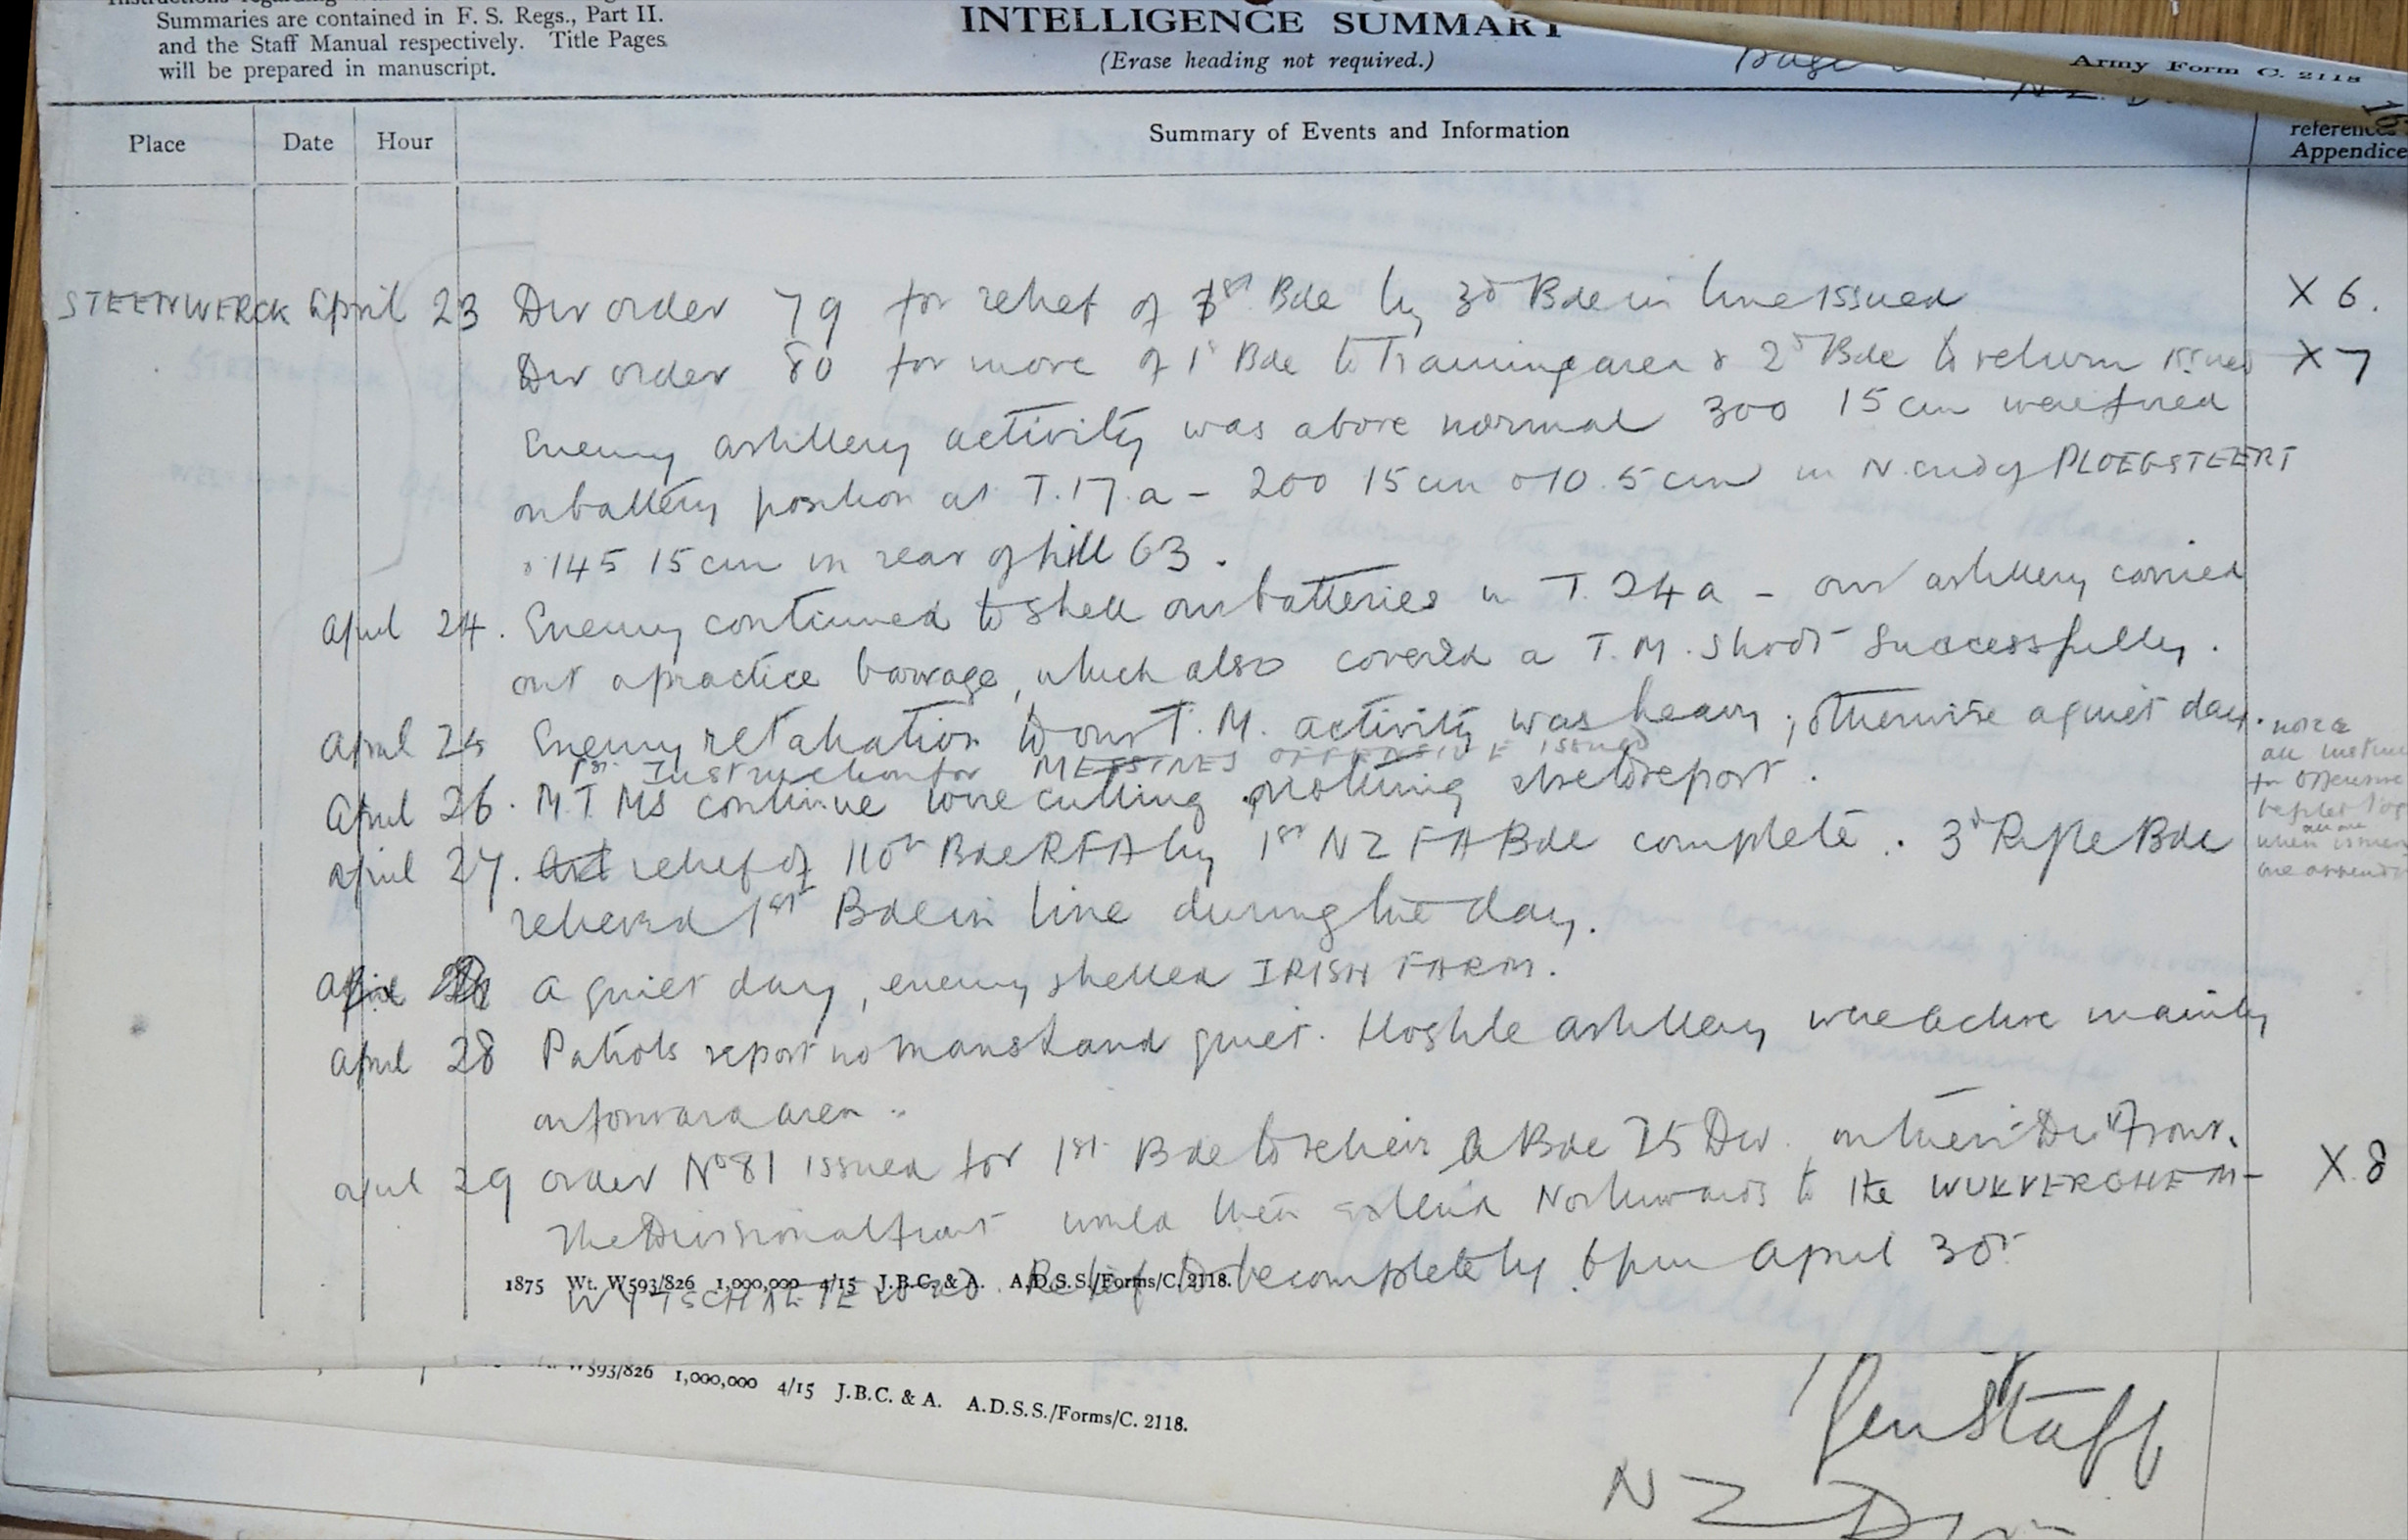 Summaries are contained in F. S. Regs., Part II.
and the Staff Manual respectively. Title Pages
will be prepared in manuscript.
INTELLIGENCE SUMMARY
(Erase heading not required.)
Page
Army Form C. 2118
N Z D
16
Place Date Hour Summary of Events and Information references Appendice
STEENWERCK April 23 Div order 79 for relief of 1st Bde by 3d Bde in line issued X 6.
Div order 80 for move of 1st Bde to Training area & 2d Bde to return issued X 7
Enemy artillery activity was above normal 300 15 cm were fired
on battery position at T.17.a - 200 15 cm & 10.5 cm in N. end of PLOEGSTEERT
& 145 15 cm in rear of hill 63.
April 24. Enemy continued to shell our batteries in T.24a - our artillery carried
out a practice barrage, which also covered a T.M. shoot successfully.
April 25 Enemy retaliation to our T.M. activity was heavy; otherwise a quiet day.
1st Instruction for MESSINES OFFENSIVE issued
April 26. M.T.Ms continue wire cutting nothing else to report.
note
all instruc
for offensive
when issued
are
April 27. relief of 110th Bde RFA by 1st NZ FA Bde complete. 3d Rifle Bde
relieved 1st Bde in line during the day.
A quiet day, enemy shelled IRISH FARM.
April 28 Patrols report no mans land quiet. Hostile artillery were active mainly
on forward area.
April 29 order No 81 issued for 1st Bde to relieve A Bde 25 Div. on their Div front. X.8
The Divisional front would then extend Northwards to the WULVERGHEM-
WYTSCHAETE road. Relief to be complete by 6 pm April 30th
1875 Wt. W593/826 1,000,000 4/15 J.B.C. & A. A.D.S.S./Forms/C. 2118.
W593/826 1,000,000 4/15 J.B.C. & A. A.D.S.S./Forms/C. 2118.
Gen Staff
N Z Div